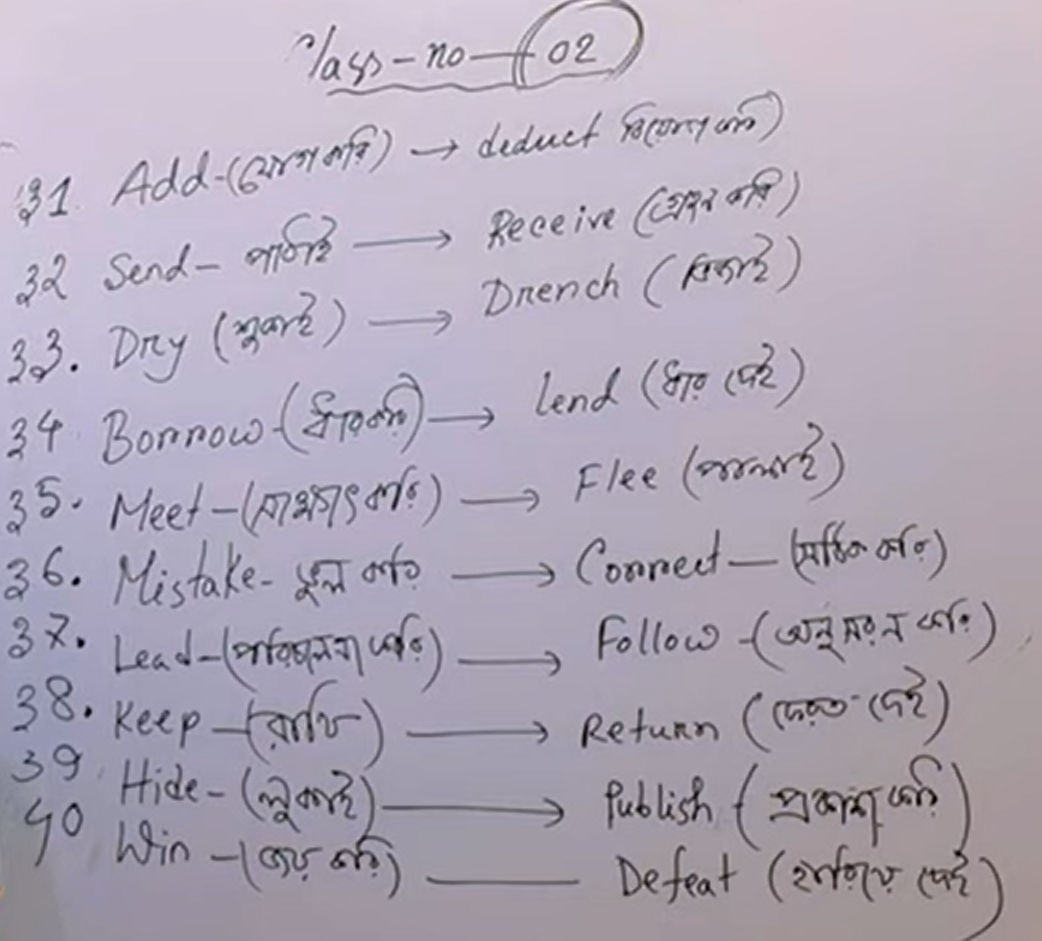 Class-no-02
31. Add-(যোগ করি) → deduct বিয়োগ করি)
32 Send- পাঠাই → Receive (গ্রহন করি)
33. Dry (শুকাই) → Drench (ভিজাই)
34 Borrow-(ধার করি) → lend (ধার দেই)
35. Meet-(সাক্ষাৎ করি) → Flee (পালাই)
36. Mistake- ভুল করি → Correct-(সঠিক করি)
37. Lead-(পরিচালনা করি) → Follow-(অনুসরন করি)
38. Keep-(রাখি) → Return (ফেরত দেই)
39 Hide-(লুকাই) → Publish (প্রকাশ করি)
40 Win-(জয় করি) — Defeat (হারিয়ে দেই)